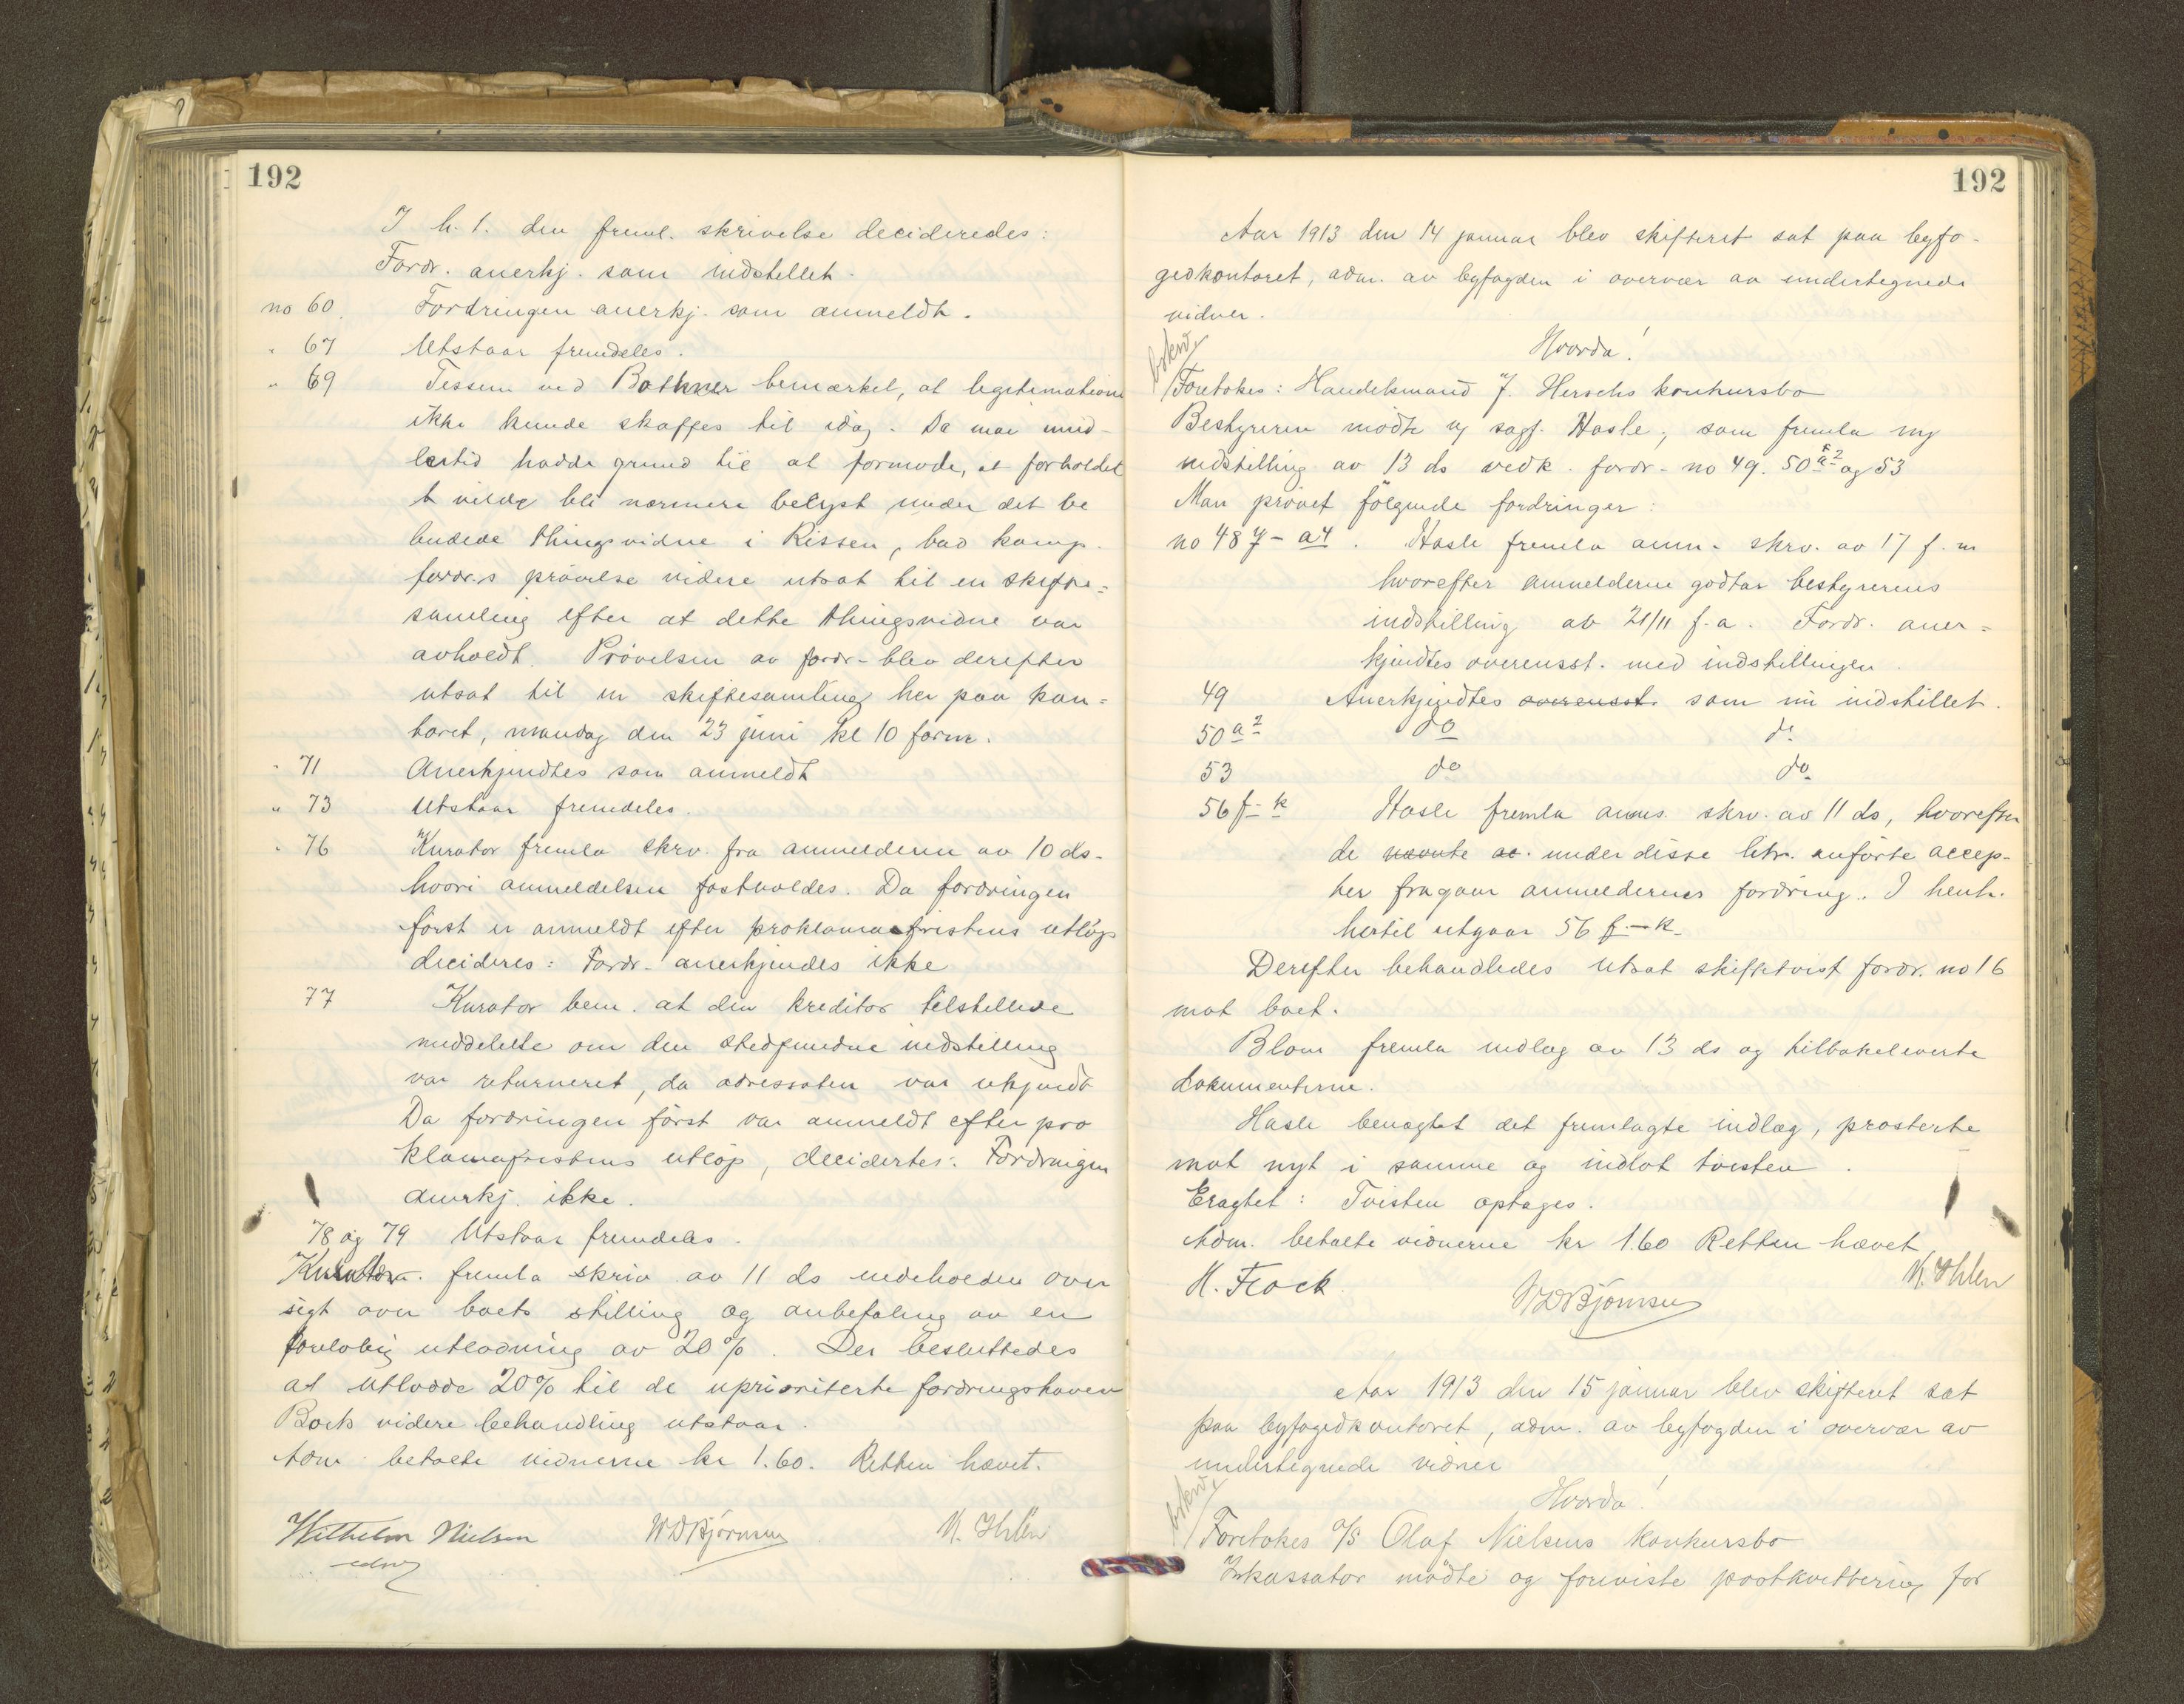 192
I h. t. den freml. skrivelse decideredes:
Fordr. anerkj. som indstillet.
no 60. Fordringen anerkj. som anmeldt.
" 67 Utstaar fremdeles.
" 69 Tessem ved Bothner bemærket, at legitimationen
ikke kunde skaffes til idag. Da mai imid-
lertid hadde grund til at formode, at forholdet
vilde bli nærmere belyst under det be
budede thingsvidne i Rissen, bad komp.
fordr.s prøvelse videre utsat til en skifte=
samling efter at dette thingsvidne var
avholdt. Prövelsen av fordr- blev derefter
utsat til en skiftesamling her paa kon=
toret, mandag den 23 juni kl 10 form.
" 71 Anerkjendtes som anmeldt
" 73 Utstaar fremdeles.
" 76 Kurator fremla skrv. fra anmelderen av 10 ds.
hvori anmeldelsen fastholdes. Da fordringen
först er anmeldt efter proklamafristens utlöp
decideres: Fordr- anerkjendes ikke
77 Kurator bem. at den kreditor tilstillede
meddelelse om den stedfundne indstilling
var returneret, da adressaten var ukjendt
Da fordringen först var anmeldt efter pro
klamafristens utlöp, decidertes: Fordringen
anerkj. ikke.
78 og 79 Utstaar fremdeles.
Kurator. fremla skriv av 11 ds indeholden over
sigt over boets stilling og anbefaling av en
foreløbig utlodning av 20%. Der besluttedes
at utlodde 20% til de uprioriterte fordringshaven
Boets videre behandling utstaar.
Adm betalte vidnerne kr 1.60. Retten hævet.
Wilhelm Nielsen W D Bjørnsen M. Ihlen
edsv
192
Aar 1913 den 14 januar blev skifteret sat paa byfo-
gedkontoret, adm. av byfogden i overvær av undertegnede
vidner.
Hvorda!
beskrev
Foretokes: Handelsmand J. Herschs konkursbo
Bestyreren mødte v/ sagf. Hasle, som fremla ny
indstilling av 13 ds vedk. fordr- no 49. 50 a² og 53
Man prövet fölgende fordringer:
no 48 7 - a4. Hasle fremla anm. skrv. av 17 f.m
hvorefter anmelderne godtar bestyrerens
indstilling av 21/11 f.a. Fordr. aner=
kjendtes overensst. med indstillingen.
49 Anerkjendtes overensst. som nu indstillet.
50 a² do do
53 do do
56 f - k Hasle fremla anms. skrv. av 11 ds, hvorefter
de nævnte ac. under disse litr. anförte accep-
ter fragaar anmeldernes fordring. I henh.
hertil utgaar 56 f - k.
Derefter behandledes utsat skiftetvist fordr. no 16
mot boet.
Blom fremla indlæg av 13 ds og tilbakeleverte
dokumenterne.
Hasle benegtet det fremlagte indlæg, prosterte
mot nyt i samme og indlot tvisten.
Eragtet: Tvisten optages.
Adm. betalte vidnerne kr 1.60 Retten hævet
H. Flock. W D Bjørnsen M. Ihlen
Aar 1913 den 15 januar blev skifteret sat
paa byfogedkontoret, adm. av byfogden i overvær av
undertegnede vidner
Hvorda!
beskrev
Foretokes A/S Olaf Nielsens konkursbo
Inkassator mödte og foreviste postkvittering for